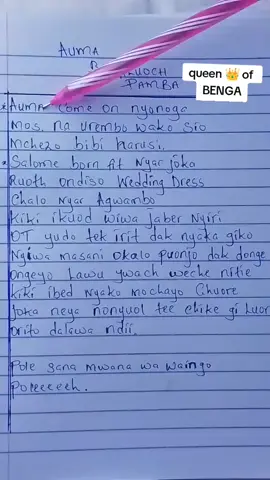 AUMA
B
LUOCH
PAMBA
queen 👑 of
BENGA
AUMA come on nyonogo
Mos. na urembo wako sio
Mchezo bibi harusi.
Salome born fit Nyar joka
Ruoth ondiso Wedding Dress
Chalo Nyar Agwambo
Kiki ikuod wiwa jaber Nyiri
OT yudo tek irit dak nyaka giko
Nyiwa masani okalo puonjo dak donge
Ongeyo Lawu ywach weche nitie
kiki ibed Nyako mochayo Chuore
Joka neya nonyuol tee chike gi Luor
orito dalawa ndii.
Pole sana mwana wa waingo
Poleeeeeh.